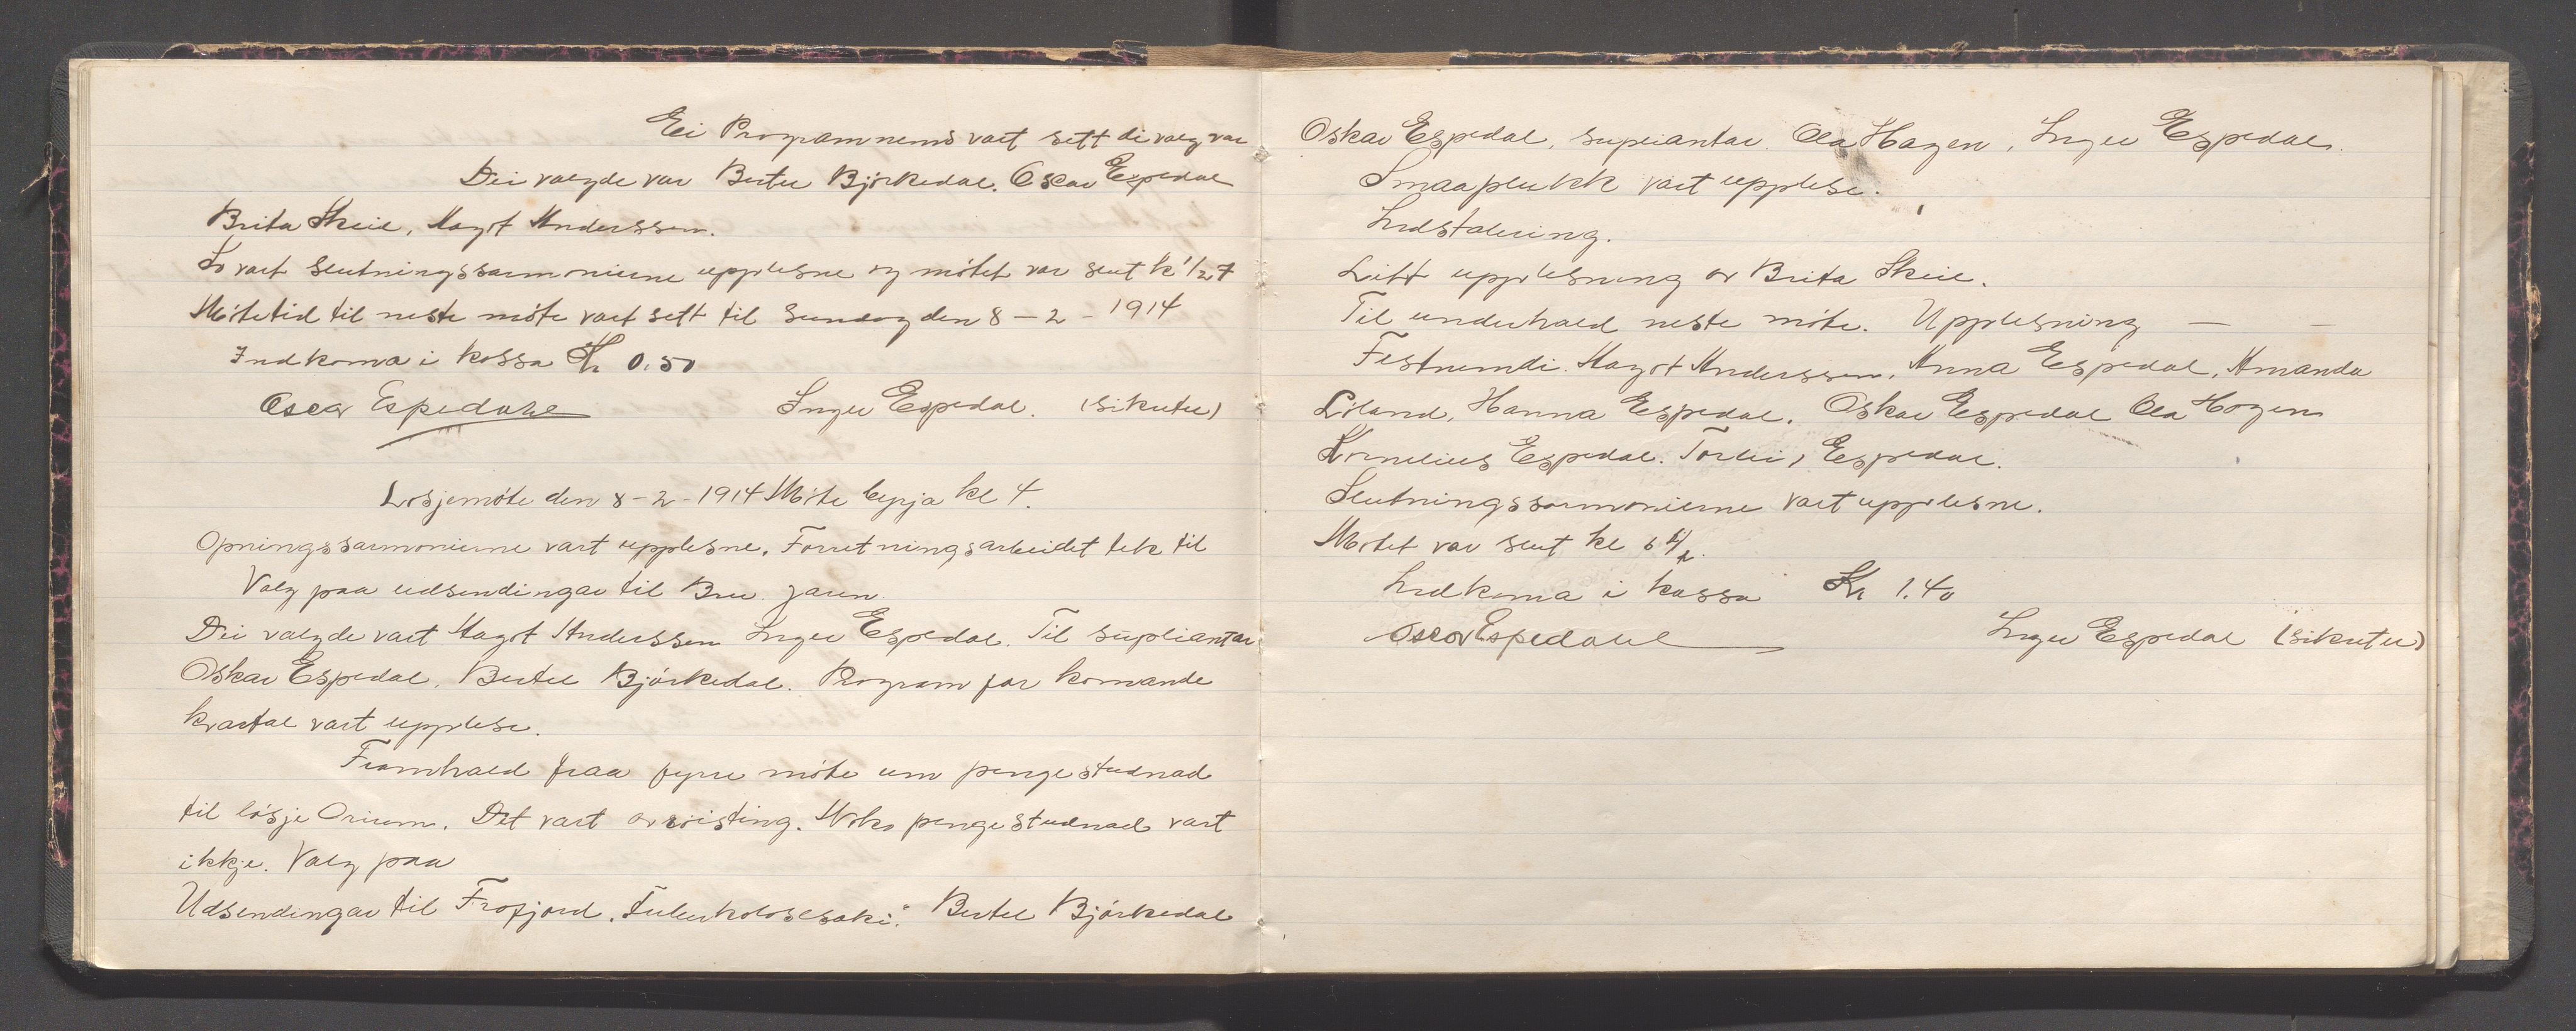 Ei Programnemd vart sett di valg var
Dei valgde var Bertel Björkedal. Oscar Espedal
Brita Skeie, Magot Anderssen.
So vart slutningssarmonierne upplesne og mötet var slut kl 1/2 7
Mötetid til neste möte vart sett til Sundag den 8 – 2 – 1914
Indkoma i kassa Kr 0.50
Oscar Espedahl Inger Espedal. (sikuter)
Losjemöte den 8 – 2 – 1914 Möte byrja kl 4.
Opningssarmonierne vart upplesne. Forretningsarbeidet tek til
Valg paa udsendingar til Bru. Jaren.
Dei valgde vart Magot Anderssen Inger Espedal. Til supliantar
Oskar Espedal, Bertel Björkedal. Program for komande
kvartal vart upplese.
Framhald fraa fyrre möte um pengestudnad
til lösje Orium. Det vart avroisting. Noko pengestudnad vart
ikkje. Valg paa
Udsendingar til Frafjord. Tuberkolosesaki. Bertel Björkedal
Oskar Espedal, supliantar. Ola Hagen, Inger Espedal.
Smaaplukk vart upplese.
Indstalering.
Litt upplesning av Brita Skeie.
Til underhald neste möte. Upplesning — —
Festnemdi. Magot Anderssen, Anna Espedal, Amanda
Liland, Hanna Espedal. Oskar Espedal Ola Hagen
Kornelius Espedal. Torlei, Espedal.
Slutningssarmonierne vart upplesne.
Mötet var slut kl 6 1/2.
Indkoma i kassa Kr 1.40
Oscar Espedahl Inger Espedal (sikuter)